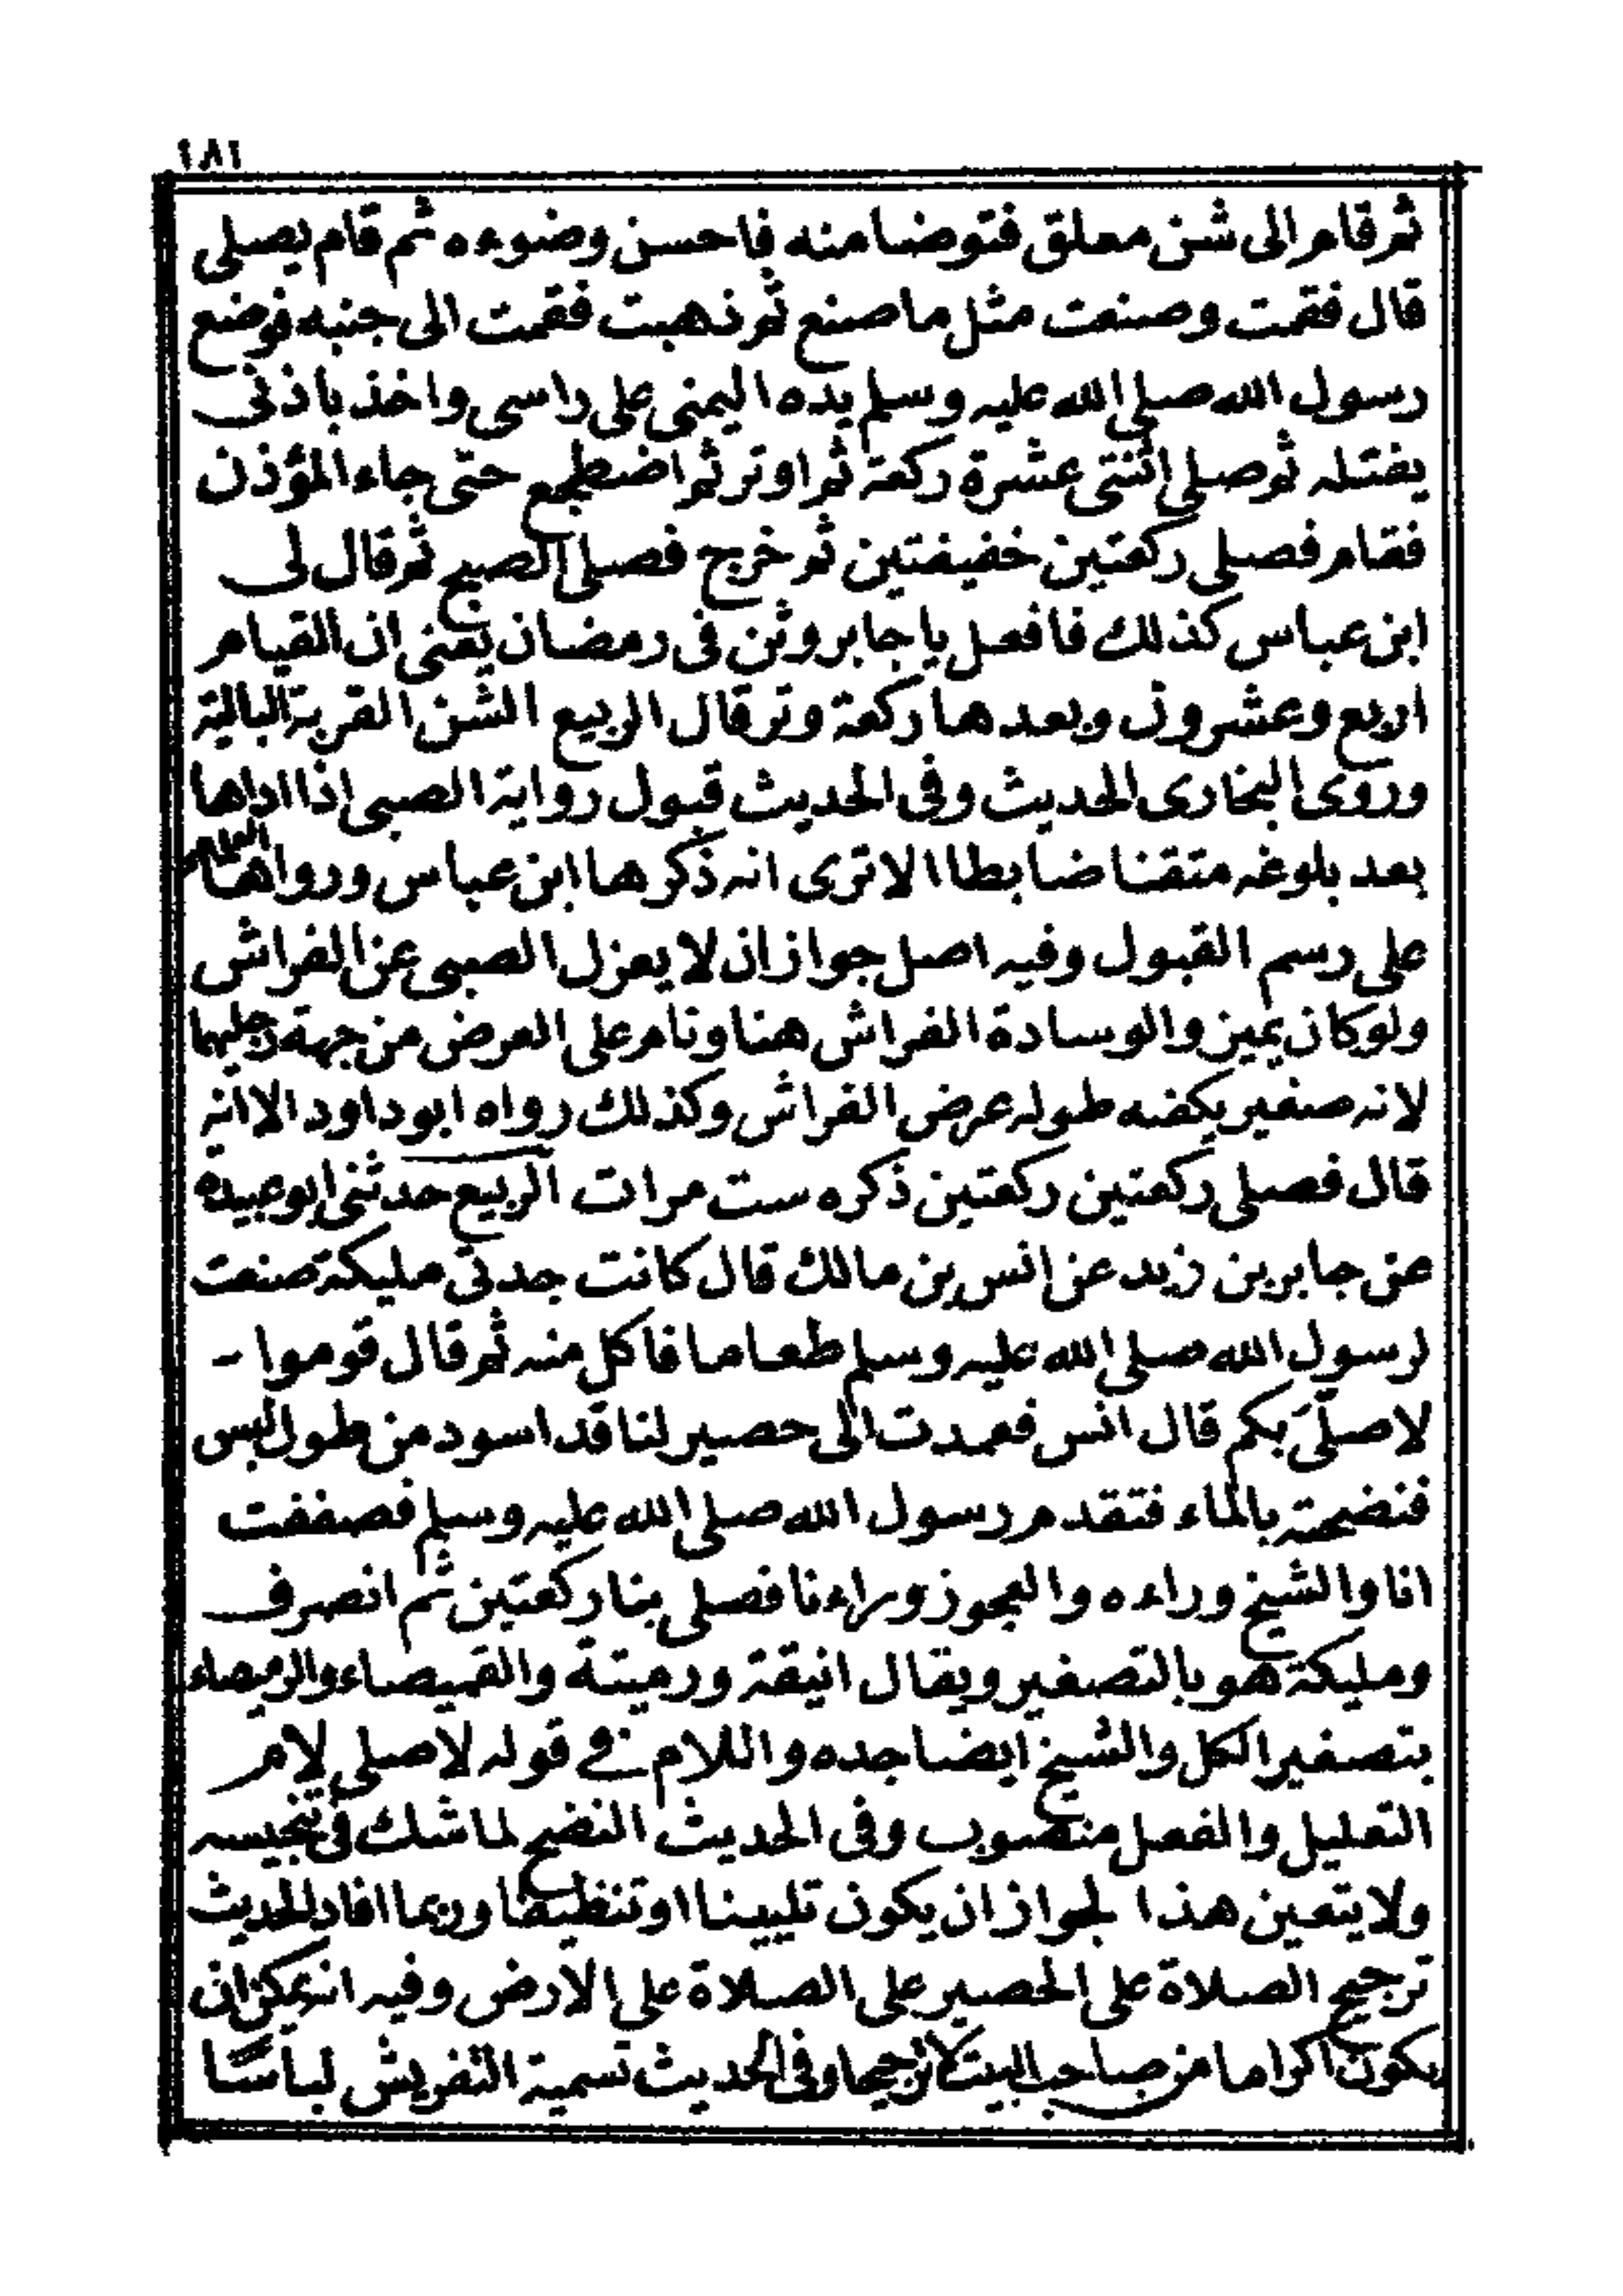 ١٨١
ثم قام الى شن معلق فتوضا منه فاحسن وضوءه ثم قام يصلى
قال فقمت وصنعت مثل ما صنع ثم ذهبت فقمت الى جنبه فوضع
رسول الله صلى الله عليه وسلم يده اليمنى على راسى واخذ باذنى
يفتله ثم صلى اثنتى عشرة ركعة ثم اوتر ثم اضطجع حتى جاء المؤذن
فقام فصلى ركعتين خفيفتين ثم خرج فصلى الصبح ثم قال لى
ابن عباس كذلك فافعل يا جابر وثن فى رمضان يعنى ان القيام
اربع وعشرون وبعدها ركعة وتر قال الربيع الشن القربة البالية
وروى البخارى الحديث وفى الحديث قبول رواية الصبى اذا اداها
بعد بلوغه متقنا ضابطا الا ترى انه ذكرها ابن عباس ورواها العلماء
على رسم القبول وفيه اصل جواز ان لا يعزل الصبى عن الفراش
ولو كان يميز والوسادة الفراش هنا ونام على العرض من جهة رجليهما
لانه صغير يكفه طوله عرض الفراش وكذلك رواه ابو داود الا انه
قال فصلى ركعتين ركعتين ذكره ست مرات الربيع حدثنى ابو عبيده
عن جابر بن زيد عن انس بن مالك قال كانت جدتى مليكة صنعت
لرسول الله صلى الله عليه وسلم طعاما فاكل منه ثم قال قوموا -
لاصلىَ بكم قال انس فعمدت الى حصير لنا قد اسود من طول لبس
فنضحته بالماء فتقدم رسول الله صلى الله عليه وسلم فصففت
انا والشيخ وراءه والعجوز وراءنا فصلى بنا ركعتين ثم انصرف
ومليكة هو بالتصغير ويقال انيقة ورميتة والقميصاء والرميصاء
بتصغير الكل والشيخ ايضا جده واللام فى قوله لاصلى لام
التعليل والفعل منصوب وفى الحديث النضح لما شك فى تنجيسه
ولا يتعين هذا لجواز ان يكون تليينا او تنظيفا وربما افاد الحديث
ترجيح الصلاة على الحصير على الصلاة على الارض وفيه انه يمكن ان
يكون اكراما من صاحب البيت لا ترجيحا وفى الحديث تسمية التفريش لباسًا